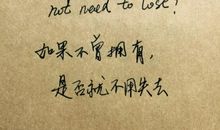 not need to lose?
如果不曾拥有,
是否就不用失去